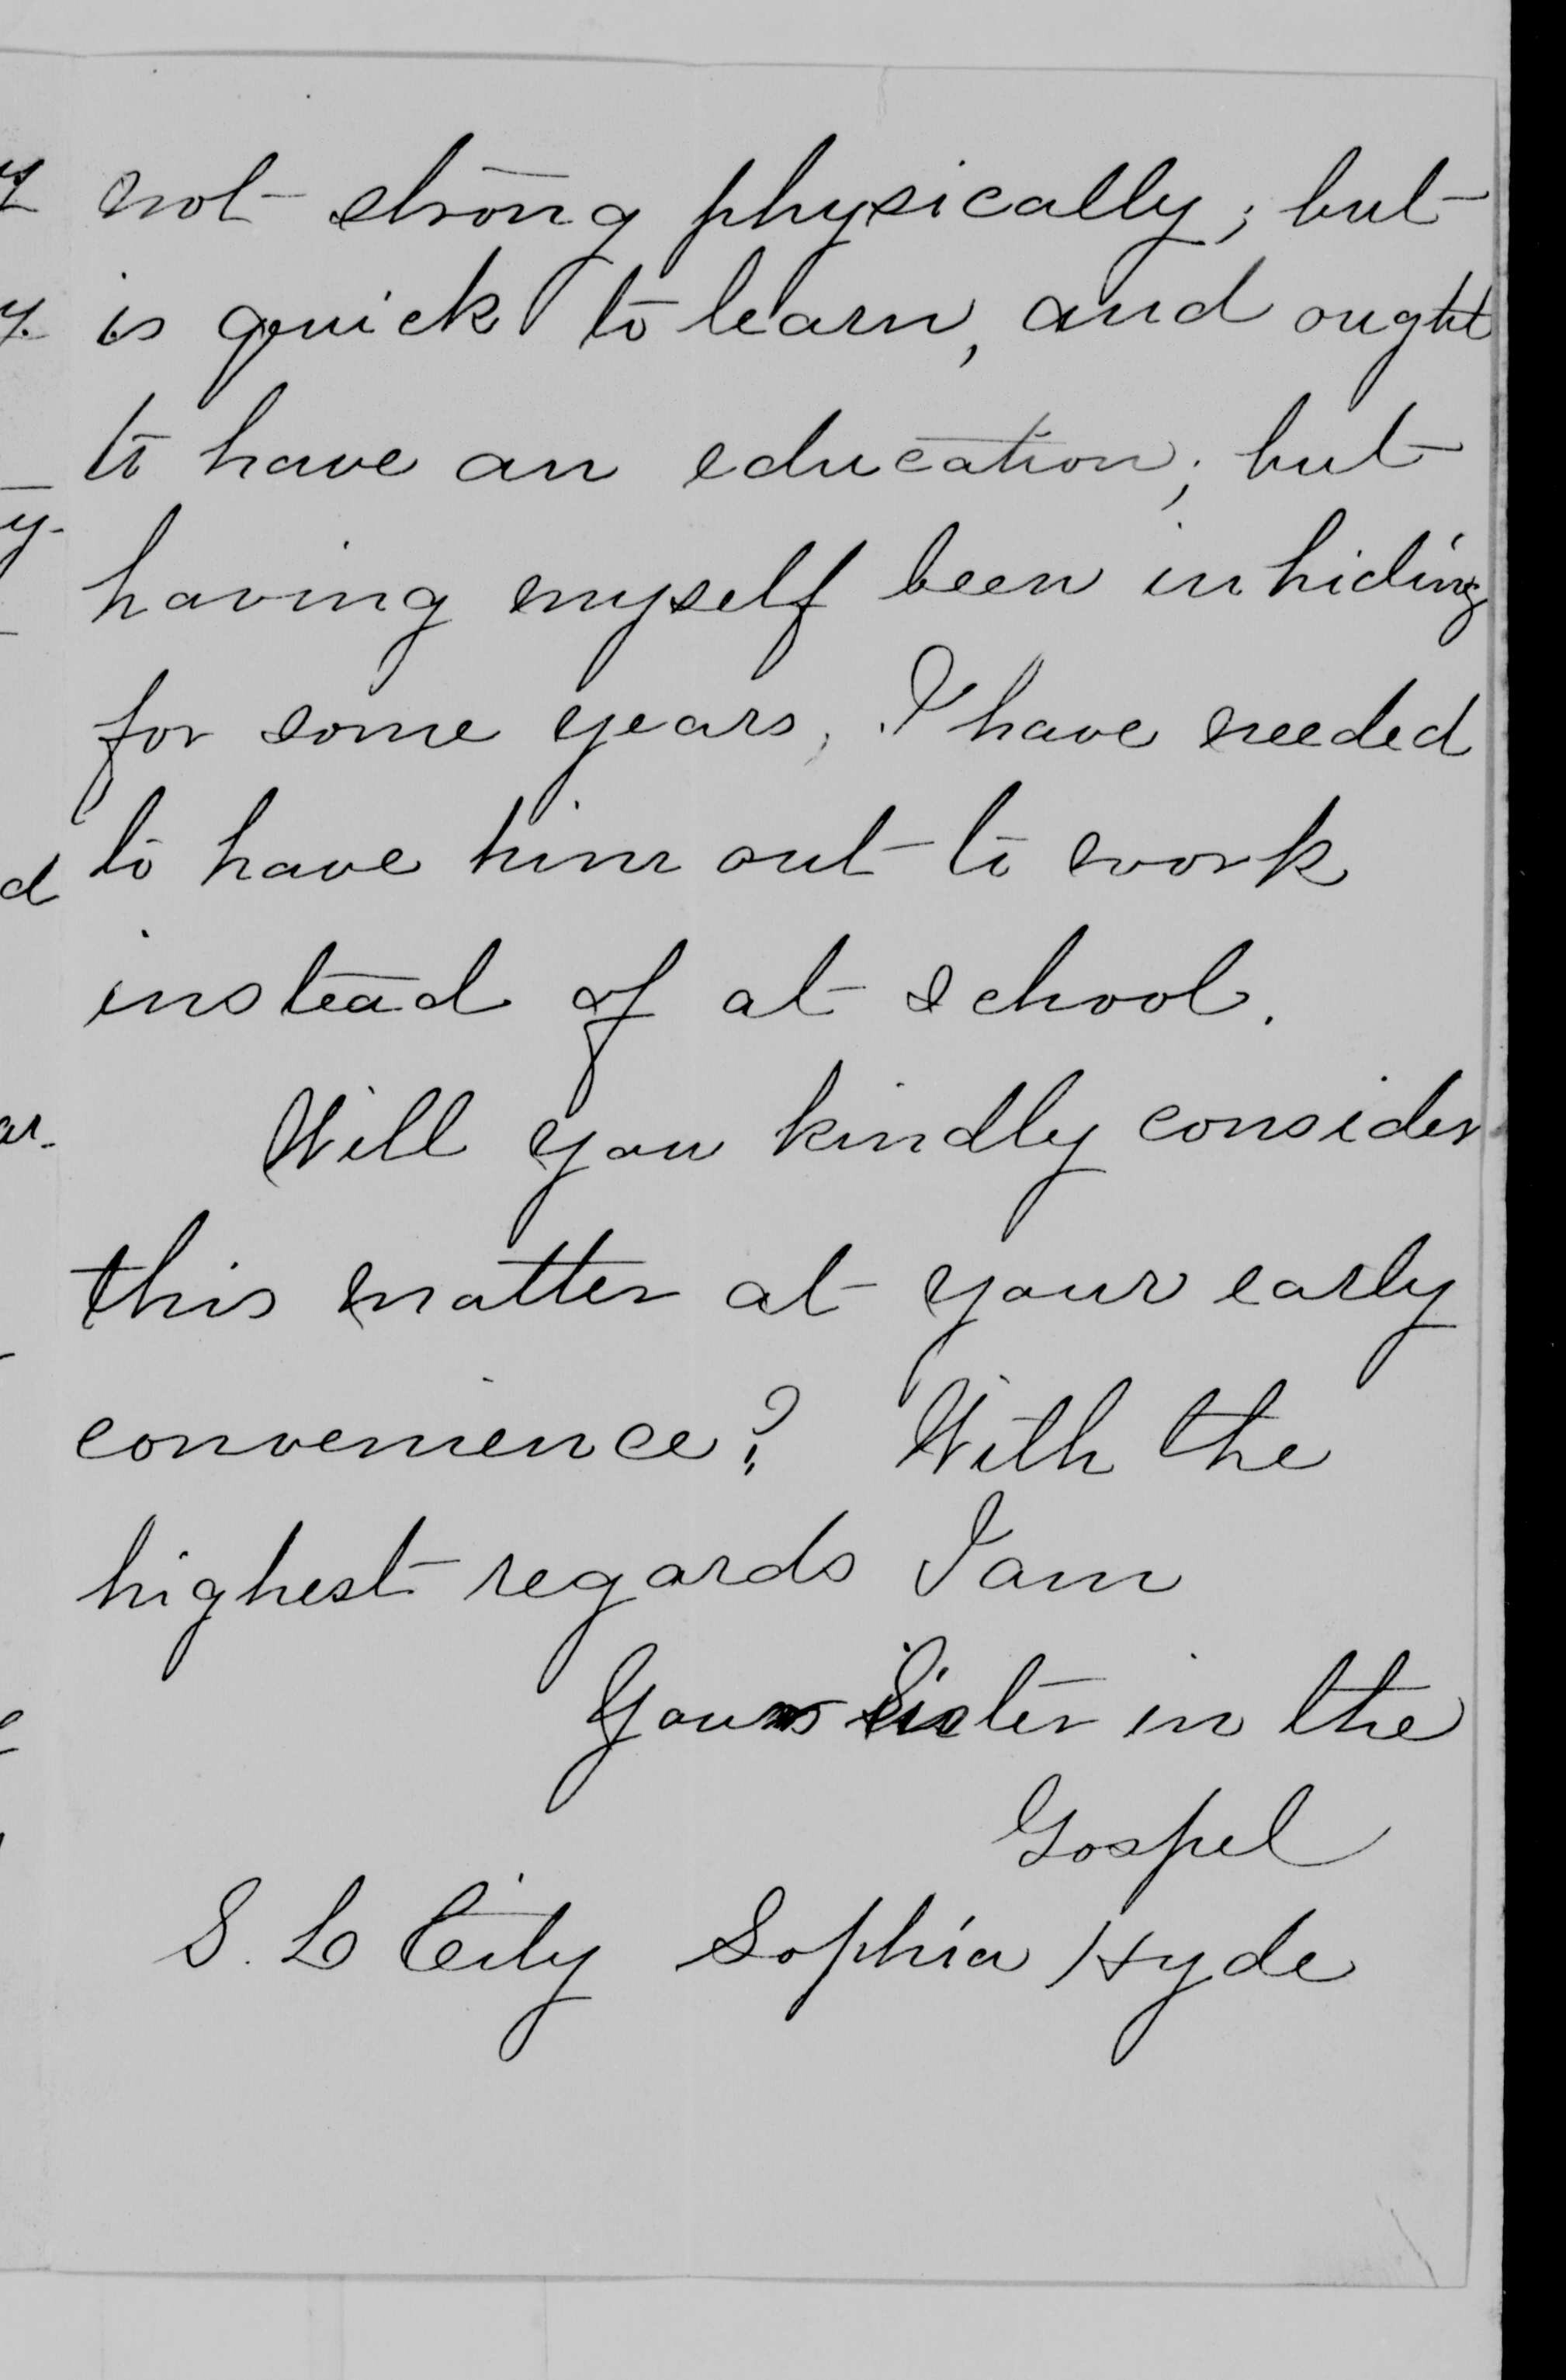 not strong physically; but
is quick to learn, and ought
to have an education; but
having myself been in hiding
for some years, I have needed
to have him out to work
instead of at school.
Will you kindly consider
this matter at your early
convenience? With the
highest regards I am
Your Sister in the
Gospel
S. L City Sophia Hyde